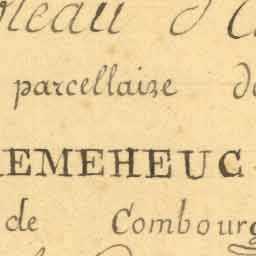 bleau d'A
parcellaire de
REMEHEUC
de Combourg